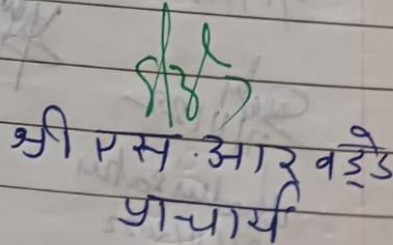 श्री एस. आर वड्डे
प्राचार्य